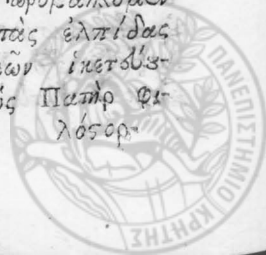 τὰς ἐλπίδας
ῶν ἱκετεύε-
ς Πατὴρ Φι-
λόϛορ-
ΠΑΝΕΠΙΣΤΗΜΙΟ ΚΡΗΤΗΣ